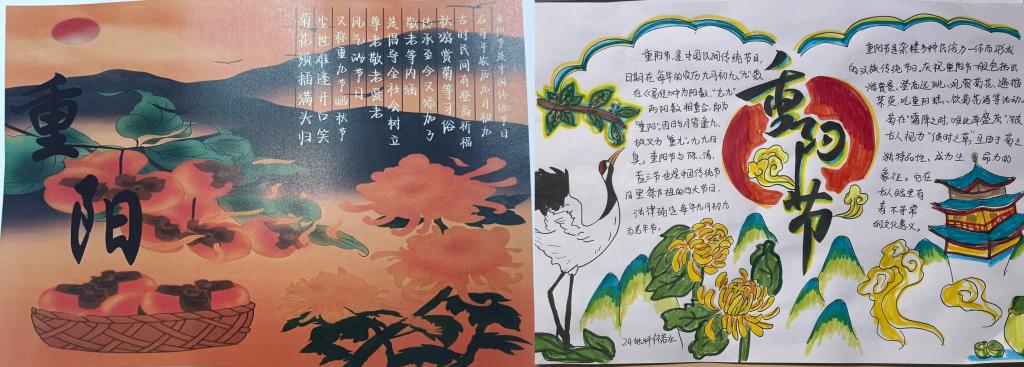 重阳
重阳节是中国传统节日
在每年农历九月初九
古时民间有登高祈福
秋游赏菊等习俗
传承至今又添加了
敬老等内涵
是倡导全社会树立
尊老敬老爱老
风气的节日
又称重九节晒秋节
尘世难逢开口笑
菊花须插满头归
重阳节
重阳节,是中国民间传统节日,
日期在每年的农历九月初九,“九”数
在《易经》中为阳数,“九九”
两阳数相叠合,即为
“重阳”,因日与月皆逢九,
故又为“重九”,九九归
真。重阳节与除、清、
盂三节也是中国传统节
日里祭祖的四大节日.
法律确定每年九月初九
为老年节。
重阳节是杂糅多种民俗为一体而形成
的汉族传统节日。庆祝重阳节一般包括出
游赏景、登高远眺、观赏菊花、遍插
茱萸、吃重阳糕、饮菊花酒等活动.
菊在“霜降之时,唯此草盛茂”,被
古人视为“候时之草”且由于菊之
独特品性,成为生命力的
象征。它在
古人眼里有
着不寻常
的文化意义。
24地科